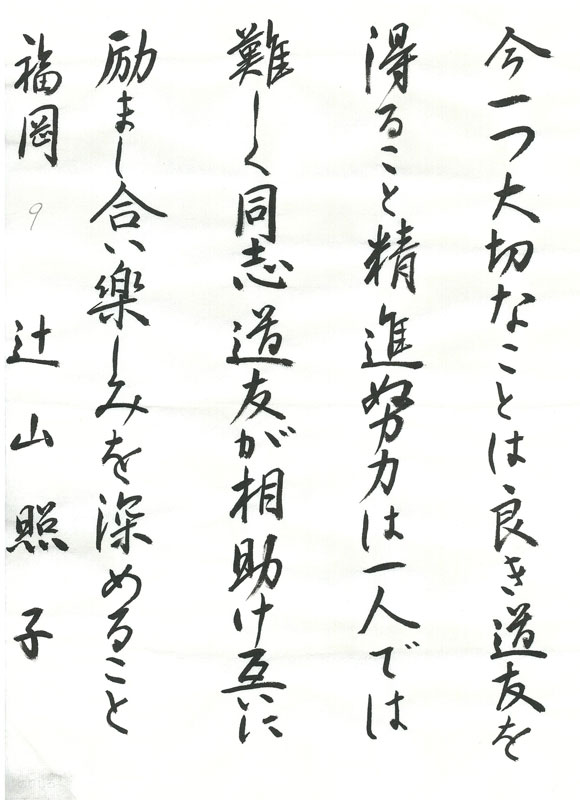 今一つ大切なことは良き道友を
得ること精進努力は一人では
難しく同志道友が相助け互いに
励まし合い楽しみを深めること
福岡 9 辻山照子